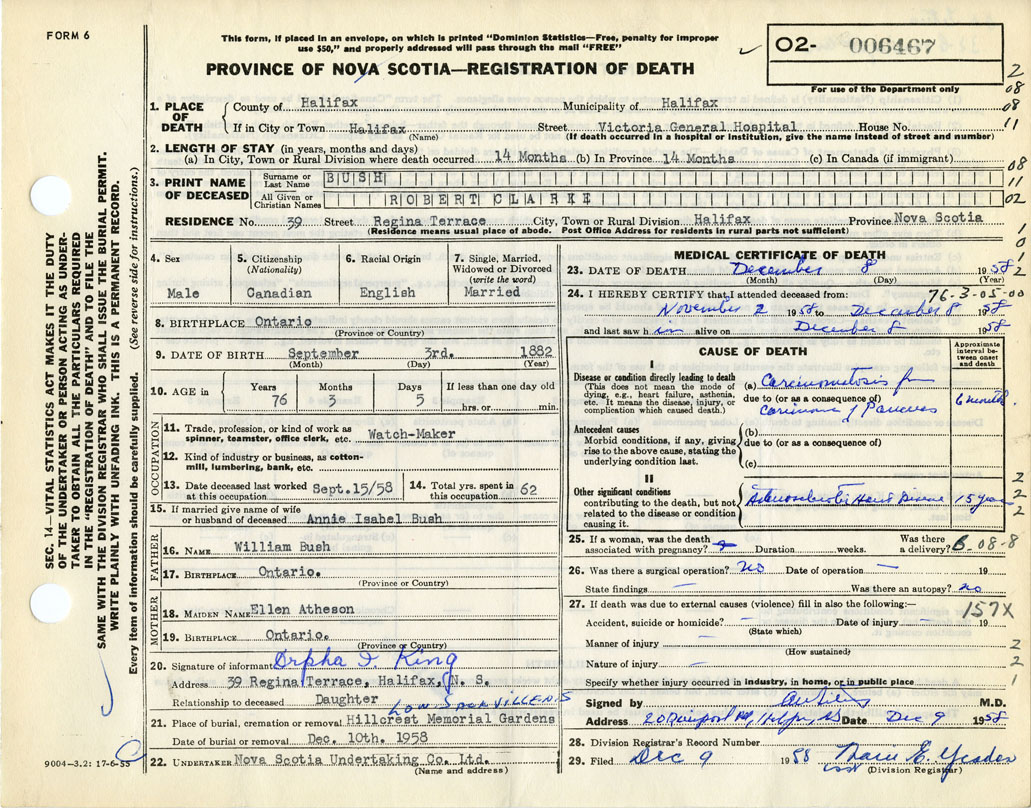 FORM 6
This form, if placed in an envelope, on which is printed "Dominion Statistics—Free, penalty for improper
use $50," and properly addressed will pass through the mail "FREE"
02- 006467
For use of the Department only
PROVINCE OF NOVA SCOTIA—REGISTRATION OF DEATH
SEC. 14—VITAL STATISTICS ACT MAKES IT THE DUTY
OF THE UNDERTAKER OR PERSON ACTING AS UNDER-
TAKER TO OBTAIN ALL THE PARTICULARS REQUIRED
IN THE "REGISTRATION OF DEATH" AND TO FILE THE
SAME WITH THE DIVISION REGISTRAR WHO SHALL ISSUE THE BURIAL PERMIT.
WRITE PLAINLY WITH UNFADING INK. THIS IS A PERMANENT RECORD.
Every item of information should be carefully supplied. (See reverse side for instructions.)
1. PLACE OF DEATH
County of Halifax Municipality of Halifax
If in City or Town Halifax Street Victoria General Hospital House No.
(Name) (If death occurred in a hospital or institution, give the name instead of street and number)
2. LENGTH OF STAY (in years, months and days)
(a) In City, Town or Rural Division where death occurred 14 Months (b) In Province 14 Months (c) In Canada (if immigrant)
3. PRINT NAME OF DECEASED
Surname or Last Name BUSH
All Given or Christian Names ROBERT CLARKE
RESIDENCE No. 39 Street Regina Terrace City, Town or Rural Division Halifax Province Nova Scotia
(Residence means usual place of abode. Post Office Address for residents in rural parts not sufficient)
2
08
08
11
08
11
02
1
0
1
2
4. Sex
Male
5. Citizenship (Nationality)
Canadian
6. Racial Origin
English
7. Single, Married, Widowed or Divorced (write the word)
Married
8. BIRTHPLACE Ontario
(Province or Country)
9. DATE OF BIRTH September 3rd. 1882
(Month) (Day) (Year)
10. AGE in Years 76 Months 3 Days 5 If less than one day old hrs. or min.
OCCUPATION
11. Trade, profession, or kind of work as spinner, teamster, office clerk, etc. Watch-Maker
12. Kind of industry or business, as cotton-mill, lumbering, bank, etc.
13. Date deceased last worked at this occupation Sept.15/58
14. Total yrs. spent in this occupation 62
15. If married give name of wife or husband of deceased Annie Isabel Bush
FATHER
16. NAME William Bush
17. BIRTHPLACE Ontario.
(Province or Country)
MOTHER
18. MAIDEN NAME Ellen Atheson
19. BIRTHPLACE Ontario.
(Province or Country)
20. Signature of informant Orpha I King
Address 39 Regina Terrace, Halifax, N. S.
Relationship to deceased Daughter
LOW. SACKVILLE N S
21. Place of burial, cremation or removal Hillcrest Memorial Gardens
Date of burial or removal Dec. 10th. 1958
22. UNDERTAKER Nova Scotia Undertaking Co. Ltd.
(Name and address)
9004—3.2: 17-6-55
MEDICAL CERTIFICATE OF DEATH
23. DATE OF DEATH December 8 1958
(Month) (Day) (Year)
24. I HEREBY CERTIFY that I attended deceased from: 76-3-05-00
November 2 1958 to December 8 1958
and last saw him alive on December 8 1958
CAUSE OF DEATH
Approximate interval between onset and death
I
Disease or condition directly leading to death
(This does not mean the mode of dying, e.g., heart failure, asthenia, etc. It means the disease, injury, or complication which caused death.)
(a) Carcinomatosis from
due to (or as a consequence of)
Carcinoma of Pancreas
6 months
Antecedent causes
Morbid conditions, if any, giving rise to the above cause, stating the underlying condition last.
(b)
due to (or as a consequence of)
(c)
II
Other significant conditions
contributing to the death, but not related to the disease or condition causing it.
Arteriosclerotic Heart Disease 15 years
2
2
2
25. If a woman, was the death associated with pregnancy? Duration weeks. Was there a delivery?
B-08-8
26. Was there a surgical operation? no Date of operation — 19
State findings — Was there an autopsy? no
27. If death was due to external causes (violence) fill in also the following:—
157X
Accident, suicide or homicide? — Date of injury — 19
(State which)
Manner of injury — 2
(How sustained)
Nature of injury — 2
Specify whether injury occurred in industry, in home, or in public place 1
Signed by M.D.
Address Date Dec 9 1958
28. Division Registrar's Record Number
29. Filed Dec 9 1958
(Division Registrar)